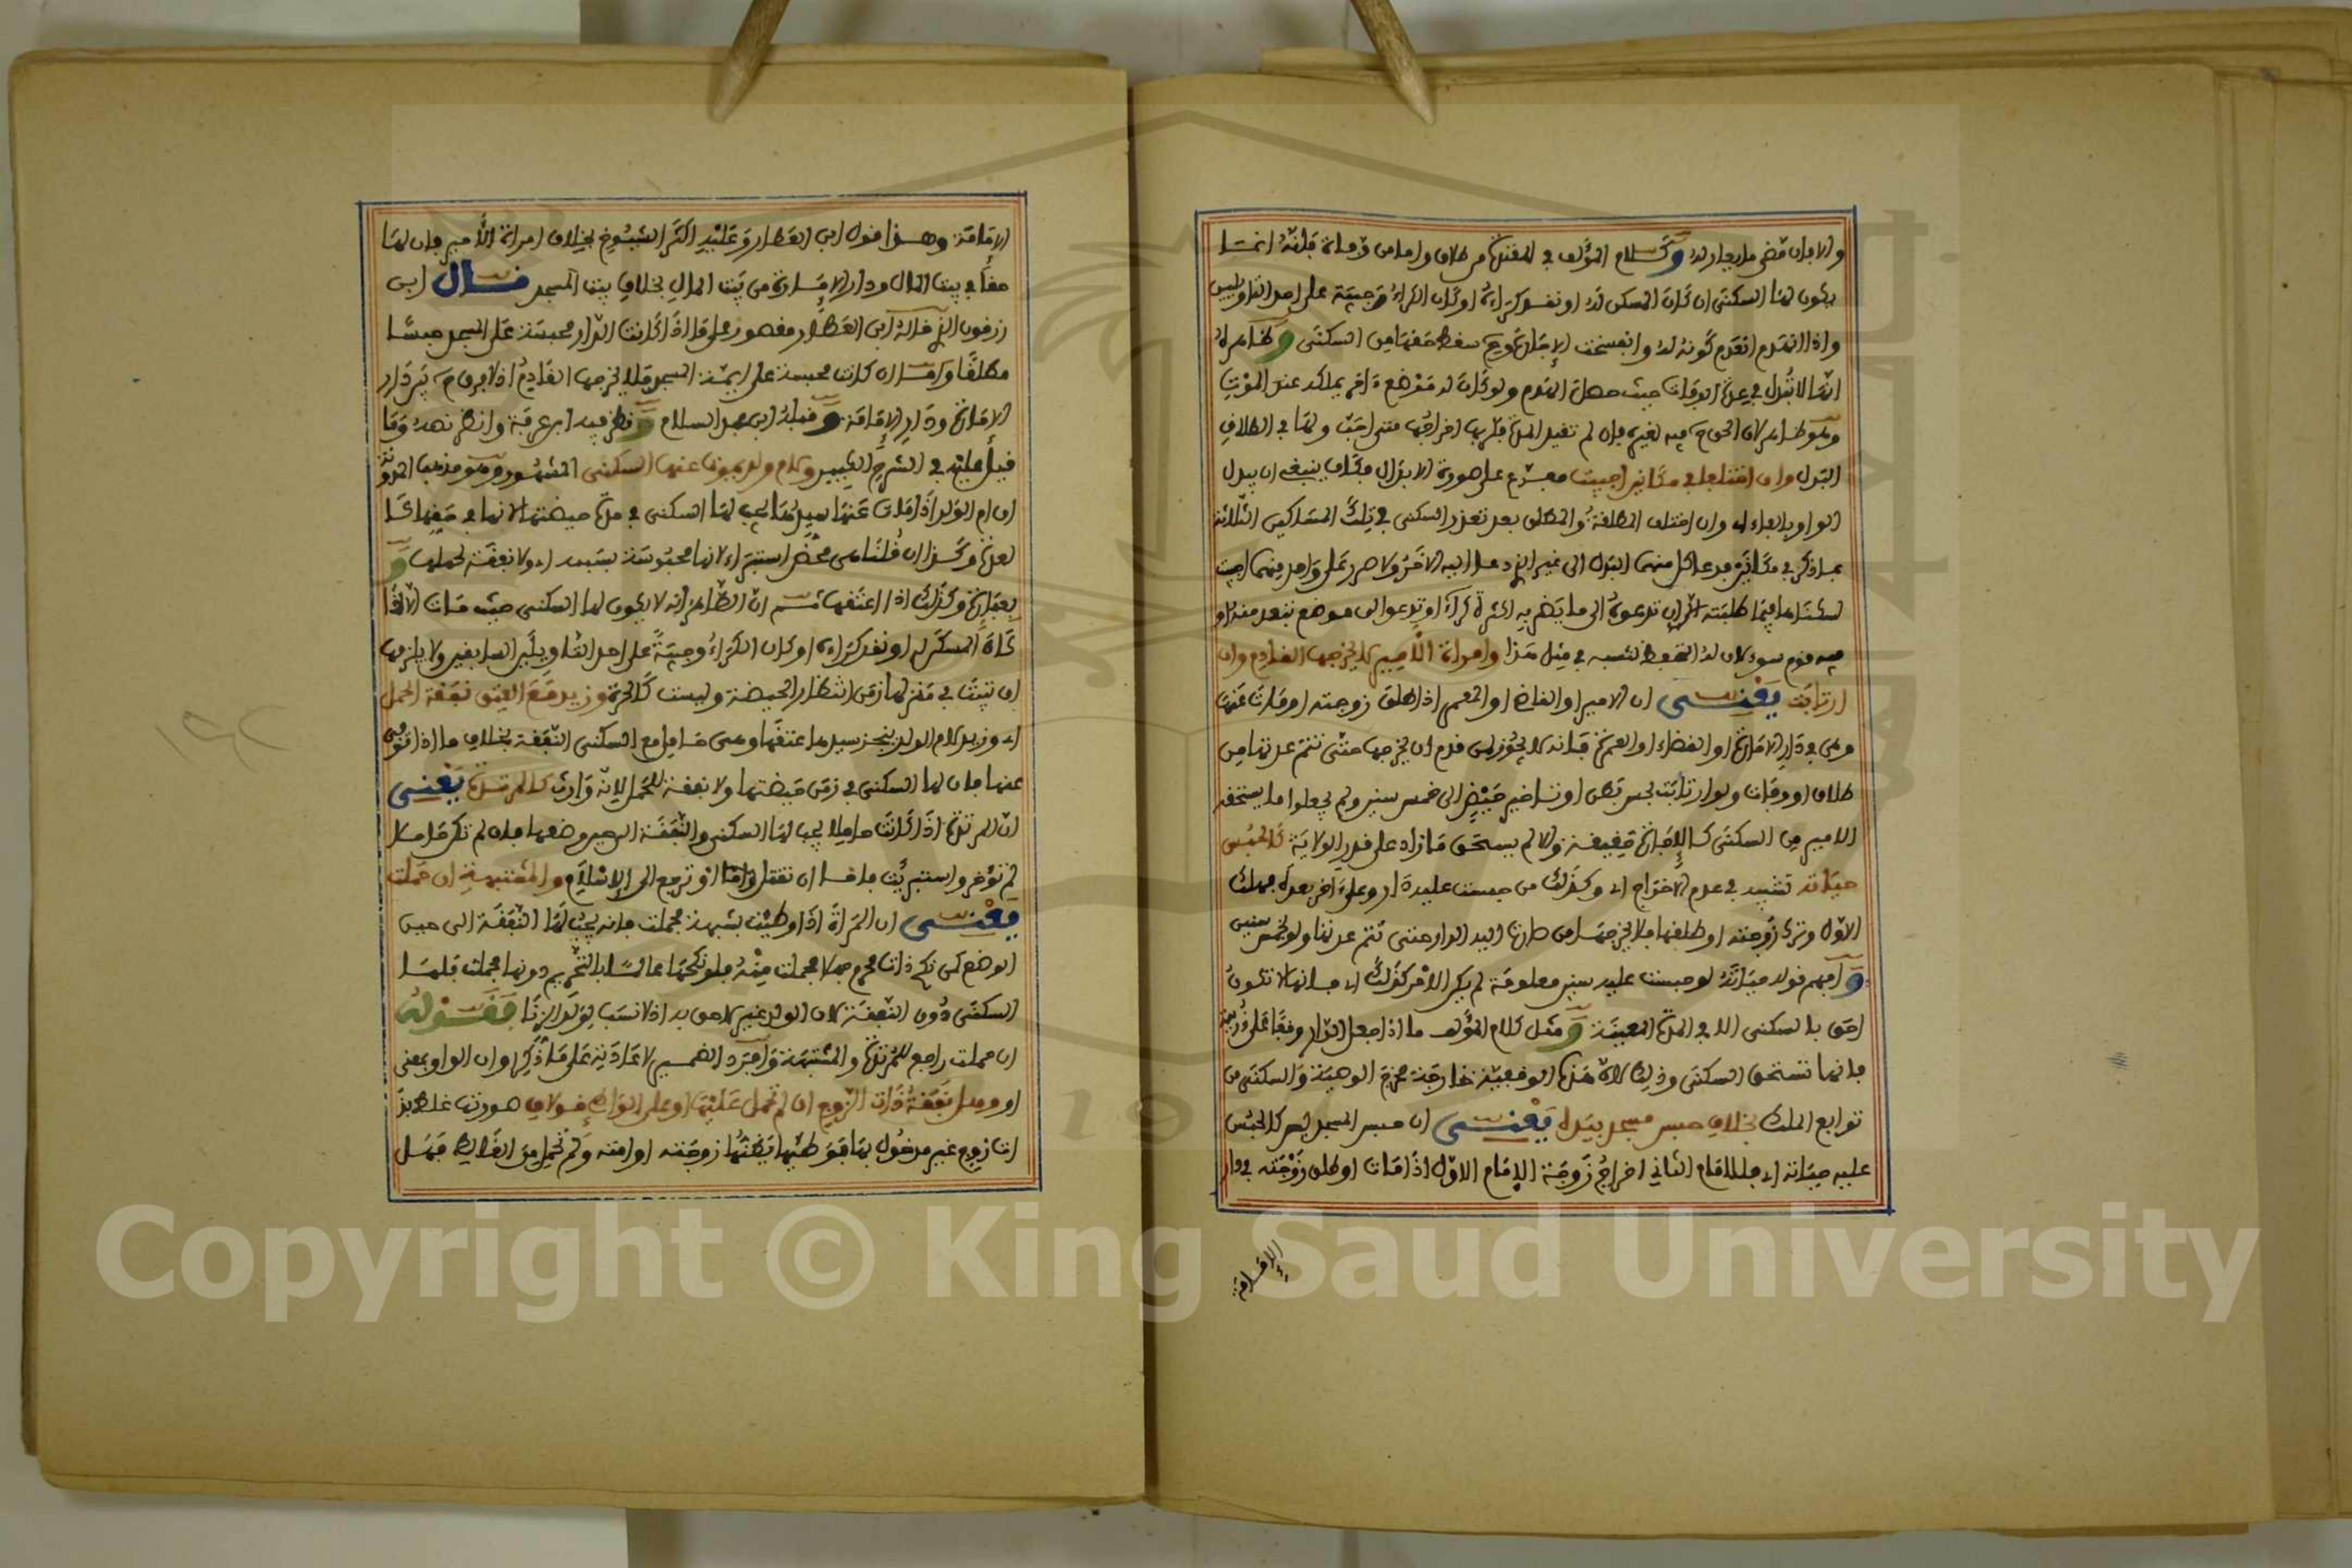 والا بان مضى ما ريجار لده وكلام المؤلف في المعتدة من طلاق واما من وفاة فانه انما
يكون لها السكنى ان كان المسكن له او نقد كراءه او كان الكراء وجيبة على احد التاويلين
واذا انهدم انعدم كونه له وانفسخت الاجارة وح سقط حقها من السكنى وظاهره
انها لا تبدل في عدة الوفاة حيث حصل الهدم ولو كان له موضع ءاخر يملكه عند الموت
وهو ظاهر لان الحق فيه لغيره فان لم تقيد المدة فلربها اخراجها متى احبت ولها في الطلاق
البدل وان اختلفا في مكانين اجيبت مفرع على صورة الابدال فكان ينبغي ان يبدل
الواو بالفاء اي وان اختلف المطلقة والمطلق بعد تعذر السكنى في تلك المساكين الثلاثة
بما ذكر في مكانين فدعا كل منهما البدل الى غير الذي دعا اليه الاخر ولا ضرر على واحد منهما اجيبت
لسكناها فيما طلبته الا ان تدعوه الى ما يضر به لكثرة كراء او تدعو الى موضع بعيد منه او
فيه قوم سوء لان له التحفظ لنسبه في مثل هذا وامراة الامير لا يخرجها القادم وان
ارتابت يعني ان الامير او القاضي او المعمر اذا طلق زوجته او مات عنها
وهي في دار الامارة او القضاء او العمرى فانه لا يجوز لمن قدم ان يخرجها حتى تتم عدتها من
طلاق او وفاة ولو ارتابت بحس بطن او تاخير حيض الى خمس سنين ولم يجعلوا ما يستحقه
الامير من السكنى كالاجارة حقيقة والا لم يستحق ما زاد على قدر الولاية كالحبس
حياته تشبيه في عدم الاخراج اي وكذلك من حبست عليه دار وعلى ءاخر بعده فهلك
الاول وترك زوجته او طلقها فلا يخرجها من صارت اليه الدار حتى تتم عدتها ولو لخمس سنين
وافهم قوله حياته لو حبست عليه سنين معلومة لم يكن الامر كذلك اي فانها لا تكون
احق بالسكنى الا في المدة المعينة ومثل كلام المؤلف ما اذا جعل الدار وقفا على ذريته
فانها تستحق السكنى وذلك لان هذه الوقفية خارجة مخرج الوصية والسكنى من
توابع الملك بخلاف حبس مسجد بيده يعني ان حبس المسجد ليس كالحبس
عليه حياته اي فللامام الثاني اخراج زوجة الامام الاول اذا مات او طلق زوجته في دار
الإمامة
الامامة وهذا قول ابن العطار وعليه اكثر الشيوخ بخلاف امراة الامير فان لها
حقا في بيت المال ودار الامارة من بيت المال بخلاف بيت المسجد قال ابن
زرقون الذي قاله ابن العطار مقصور على ما اذا كانت الدار محبسة على المسجد حبسا
مطلقا واما ان كانت محبسة على ايمة المسجد فلا يخرجها القادم اذ لا فرق ح بين دار
الامارة ودار الامامة وقبله ابن عبد السلام ونظر فيه ابن عرفة وانظر نصه وما
قيل عليه في الشرح الكبير ولام ولد يموت عنها السكنى المشهور وهو مذهب المدونة
ان ام الولد اذا مات عنها سيدها يجب لها السكنى في مدة حيضتها لانها في حقها كالعدة
لعدة وكذا ان قلنا هي محض استبراء لانها محبوسة بسببه اي ولا نفقة لحملها و
بعبارة وكذلك اذا اعتقها ثم ان الظاهر انه لا يكون لها السكنى حيث مات الا اذا
كان المسكن له او نقد كراءه او كان الكراء وجيبة على احد التاويلين السابقين ولا يلزمها
ان تبيت في منزلها زمن انتظار الحيضة وليست كالحرة وزيد مع العتق نفقة الحمل
اي وزيد لام الولد ينجز سيدها عتقها وهي حامل مع السكنى النفقة بخلاف ما اذا توفى
عنها فان لها السكنى في زمن حيضتها ولا نفقة للحمل لانه وارث كالمرتدة يعني
ان المرتدة اذا كانت حاملا يجب لها السكنى والنفقة الى حين وضعها فان لم تكن حاملا
لم تؤخر واستبريت فاما ان تقتل واما ان ترجع الى الاسلام والمشتبهة ان حملت
يعني ان المراة اذا وطئت بشبهة فحملت فانه يجب لها النفقة الى حين
الوضع كمن نكح ذات محرم جهلا فحملت منه فلو نكحها عالما بالتحريم دونها فحملت فلها
السكنى دون النفقة لان الولد غير لاحق به اذ لا نسب لولد الزنا فقوله
ان حملت راجع للمرتدة والمشتبهة وافرد الضمير لاعادته على ما ذكر او ان الواو بمعنى
او وهل نفقة ذات الزوج ان لم تحمل عليها او على الواطئ قولان صورتها غلط بذات
ذات زوج غير مدخول بها فوطئها يظنها زوجته او امته ولم تحمل من الغالط فهل